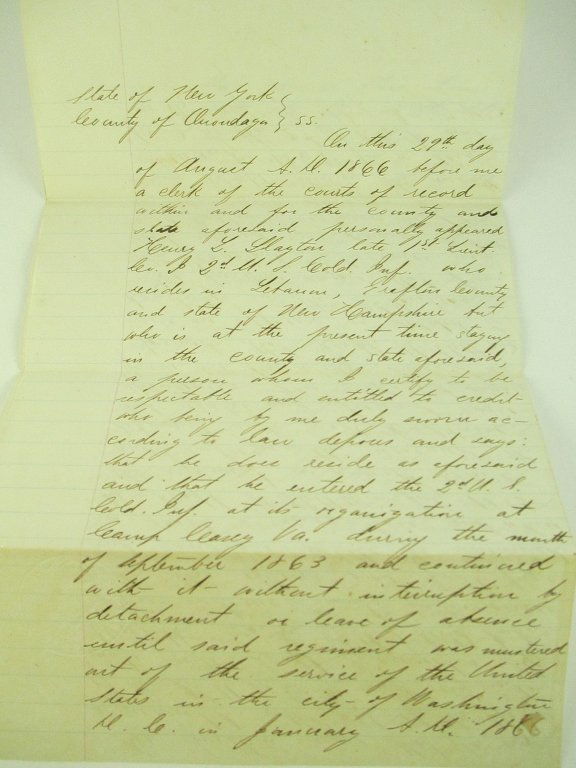 State of New York }
County of Onondaga } ss.
On this 29th day
of August A.D. 1866 before me
a clerk of the courts of record
within and for the county and
state aforesaid personally appeared
Henry L. Slayton late 1st Lieut.
Co. I 2d U. S. Cold. Inf. who
resides in Lebanon, Grafton County
and state of New Hampshire but
who is at the present time staying
in the county and state aforesaid,
a person whom I certify to be
respectable and entitled to credit
who being by me duly sworn ac-
cording to law deposes and says:
that he does reside as aforesaid
and that he entered the 2d U. S.
Cold. Inf. at its organization at
Camp Casey Va. during the month
of September 1863 and continued
with it without interruption by
detachment or leave of absence
until said regiment was mustered
out of the service of the United
States in the city of Washington
D. C. in January A.D. 1866